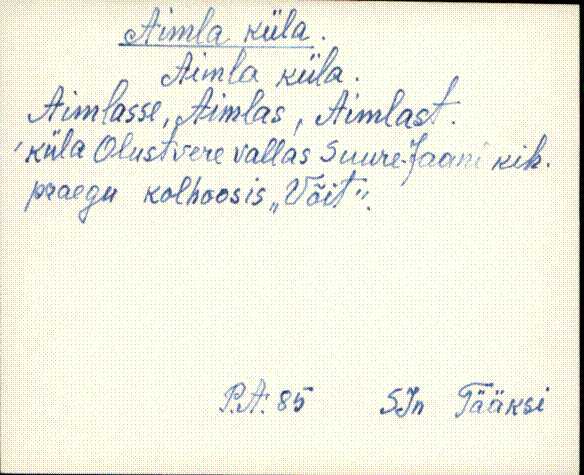 Aimla küla.
Aimla küla.
Aimlasse, Aimlas, Aimlast.
'küla Olustvere vallas Suure-Jaani kih.
praegu kolhoosis „Võit".
P.A. 85 SJn Tääksi